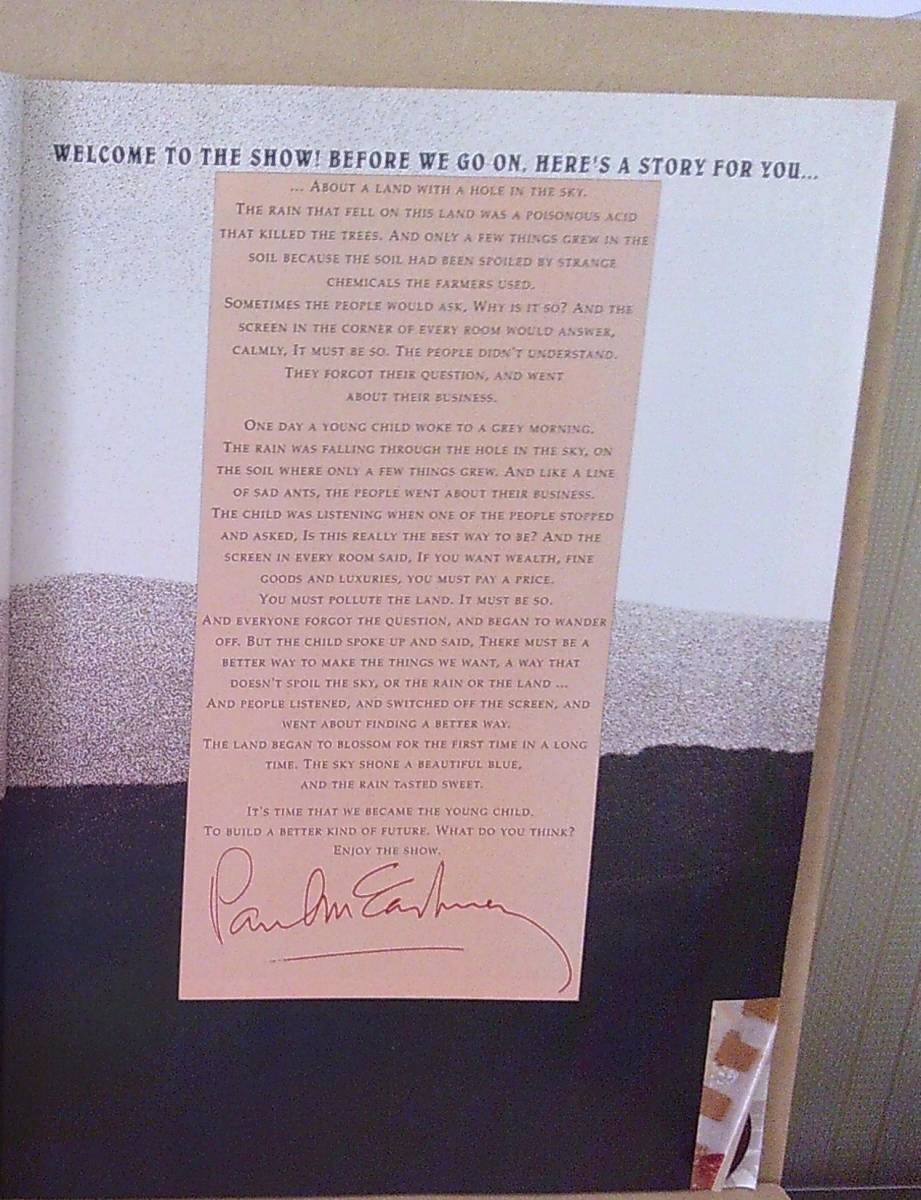 WELCOME TO THE SHOW! BEFORE WE GO ON, HERE'S A STORY FOR YOU...
... ABOUT A LAND WITH A HOLE IN THE SKY.
THE RAIN THAT FELL ON THIS LAND WAS A POISONOUS ACID
THAT KILLED THE TREES. AND ONLY A FEW THINGS GREW IN THE
SOIL BECAUSE THE SOIL HAD BEEN SPOILED BY STRANGE
CHEMICALS THE FARMERS USED.
SOMETIMES THE PEOPLE WOULD ASK, WHY IS IT SO? AND THE
SCREEN IN THE CORNER OF EVERY ROOM WOULD ANSWER,
CALMLY, IT MUST BE SO. THE PEOPLE DIDN'T UNDERSTAND.
THEY FORGOT THEIR QUESTION, AND WENT
ABOUT THEIR BUSINESS.
ONE DAY A YOUNG CHILD WOKE TO A GREY MORNING.
THE RAIN WAS FALLING THROUGH THE HOLE IN THE SKY, ON
THE SOIL WHERE ONLY A FEW THINGS GREW. AND LIKE A LINE
OF SAD ANTS, THE PEOPLE WENT ABOUT THEIR BUSINESS.
THE CHILD WAS LISTENING WHEN ONE OF THE PEOPLE STOPPED
AND ASKED, IS THIS REALLY THE BEST WAY TO BE? AND THE
SCREEN IN EVERY ROOM SAID, IF YOU WANT WEALTH, FINE
GOODS AND LUXURIES, YOU MUST PAY A PRICE.
YOU MUST POLLUTE THE LAND. IT MUST BE SO.
AND EVERYONE FORGOT THE QUESTION, AND BEGAN TO WANDER
OFF. BUT THE CHILD SPOKE UP AND SAID, THERE MUST BE A
BETTER WAY TO MAKE THE THINGS WE WANT, A WAY THAT
DOESN'T SPOIL THE SKY, OR THE RAIN OR THE LAND ...
AND PEOPLE LISTENED, AND SWITCHED OFF THE SCREEN, AND
WENT ABOUT FINDING A BETTER WAY.
THE LAND BEGAN TO BLOSSOM FOR THE FIRST TIME IN A LONG
TIME. THE SKY SHONE A BEAUTIFUL BLUE,
AND THE RAIN TASTED SWEET.
IT'S TIME THAT WE BECAME THE YOUNG CHILD.
TO BUILD A BETTER KIND OF FUTURE. WHAT DO YOU THINK?
ENJOY THE SHOW.
Paul McCartney